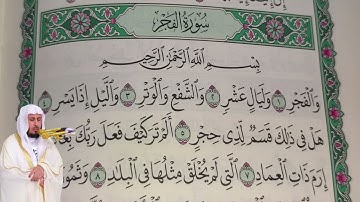 سُورَةُ الفَجْرِ
بِسْمِ اللَّهِ الرَّحْمَٰنِ الرَّحِيمِ
وَالْفَجْرِ ۝١ وَلَيَالٍ عَشْرٍ ۝٢ وَالشَّفْعِ وَالْوَتْرِ ۝٣ وَاللَّيْلِ إِذَا يَسْرِ ۝٤
هَلْ فِي ذَٰلِكَ قَسَمٌ لِّذِي حِجْرٍ ۝٥ أَلَمْ تَرَ كَيْفَ فَعَلَ رَبُّكَ بِعَادٍ
إِرَمَ ذَاتِ الْعِمَادِ ۝٧ الَّتِي لَمْ يُخْلَقْ مِثْلُهَا فِي الْبِلَادِ ۝٨ وَثَمُودَ